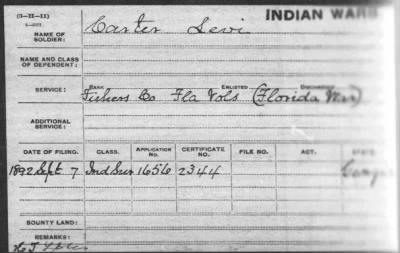 (3—II—11)
INDIAN WARS
NAME OF SOLDIER:
Carter Levi
NAME AND CLASS OF DEPENDENT:
SERVICE:
RANK ENLISTED DISCHARGED
Fishers Co Fla Vols (Florida War)
ADDITIONAL SERVICE:
DATE OF FILING. CLASS. APPLICATION NO. CERTIFICATE NO. FILE NO. ACT. STATE
1892 Sept 7 Ind Sur 1656 2344
BOUNTY LAND:
REMARKS: